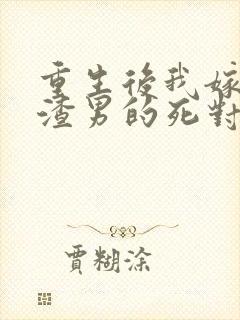 重生後我嫁
渣男的死對
賈糊塗